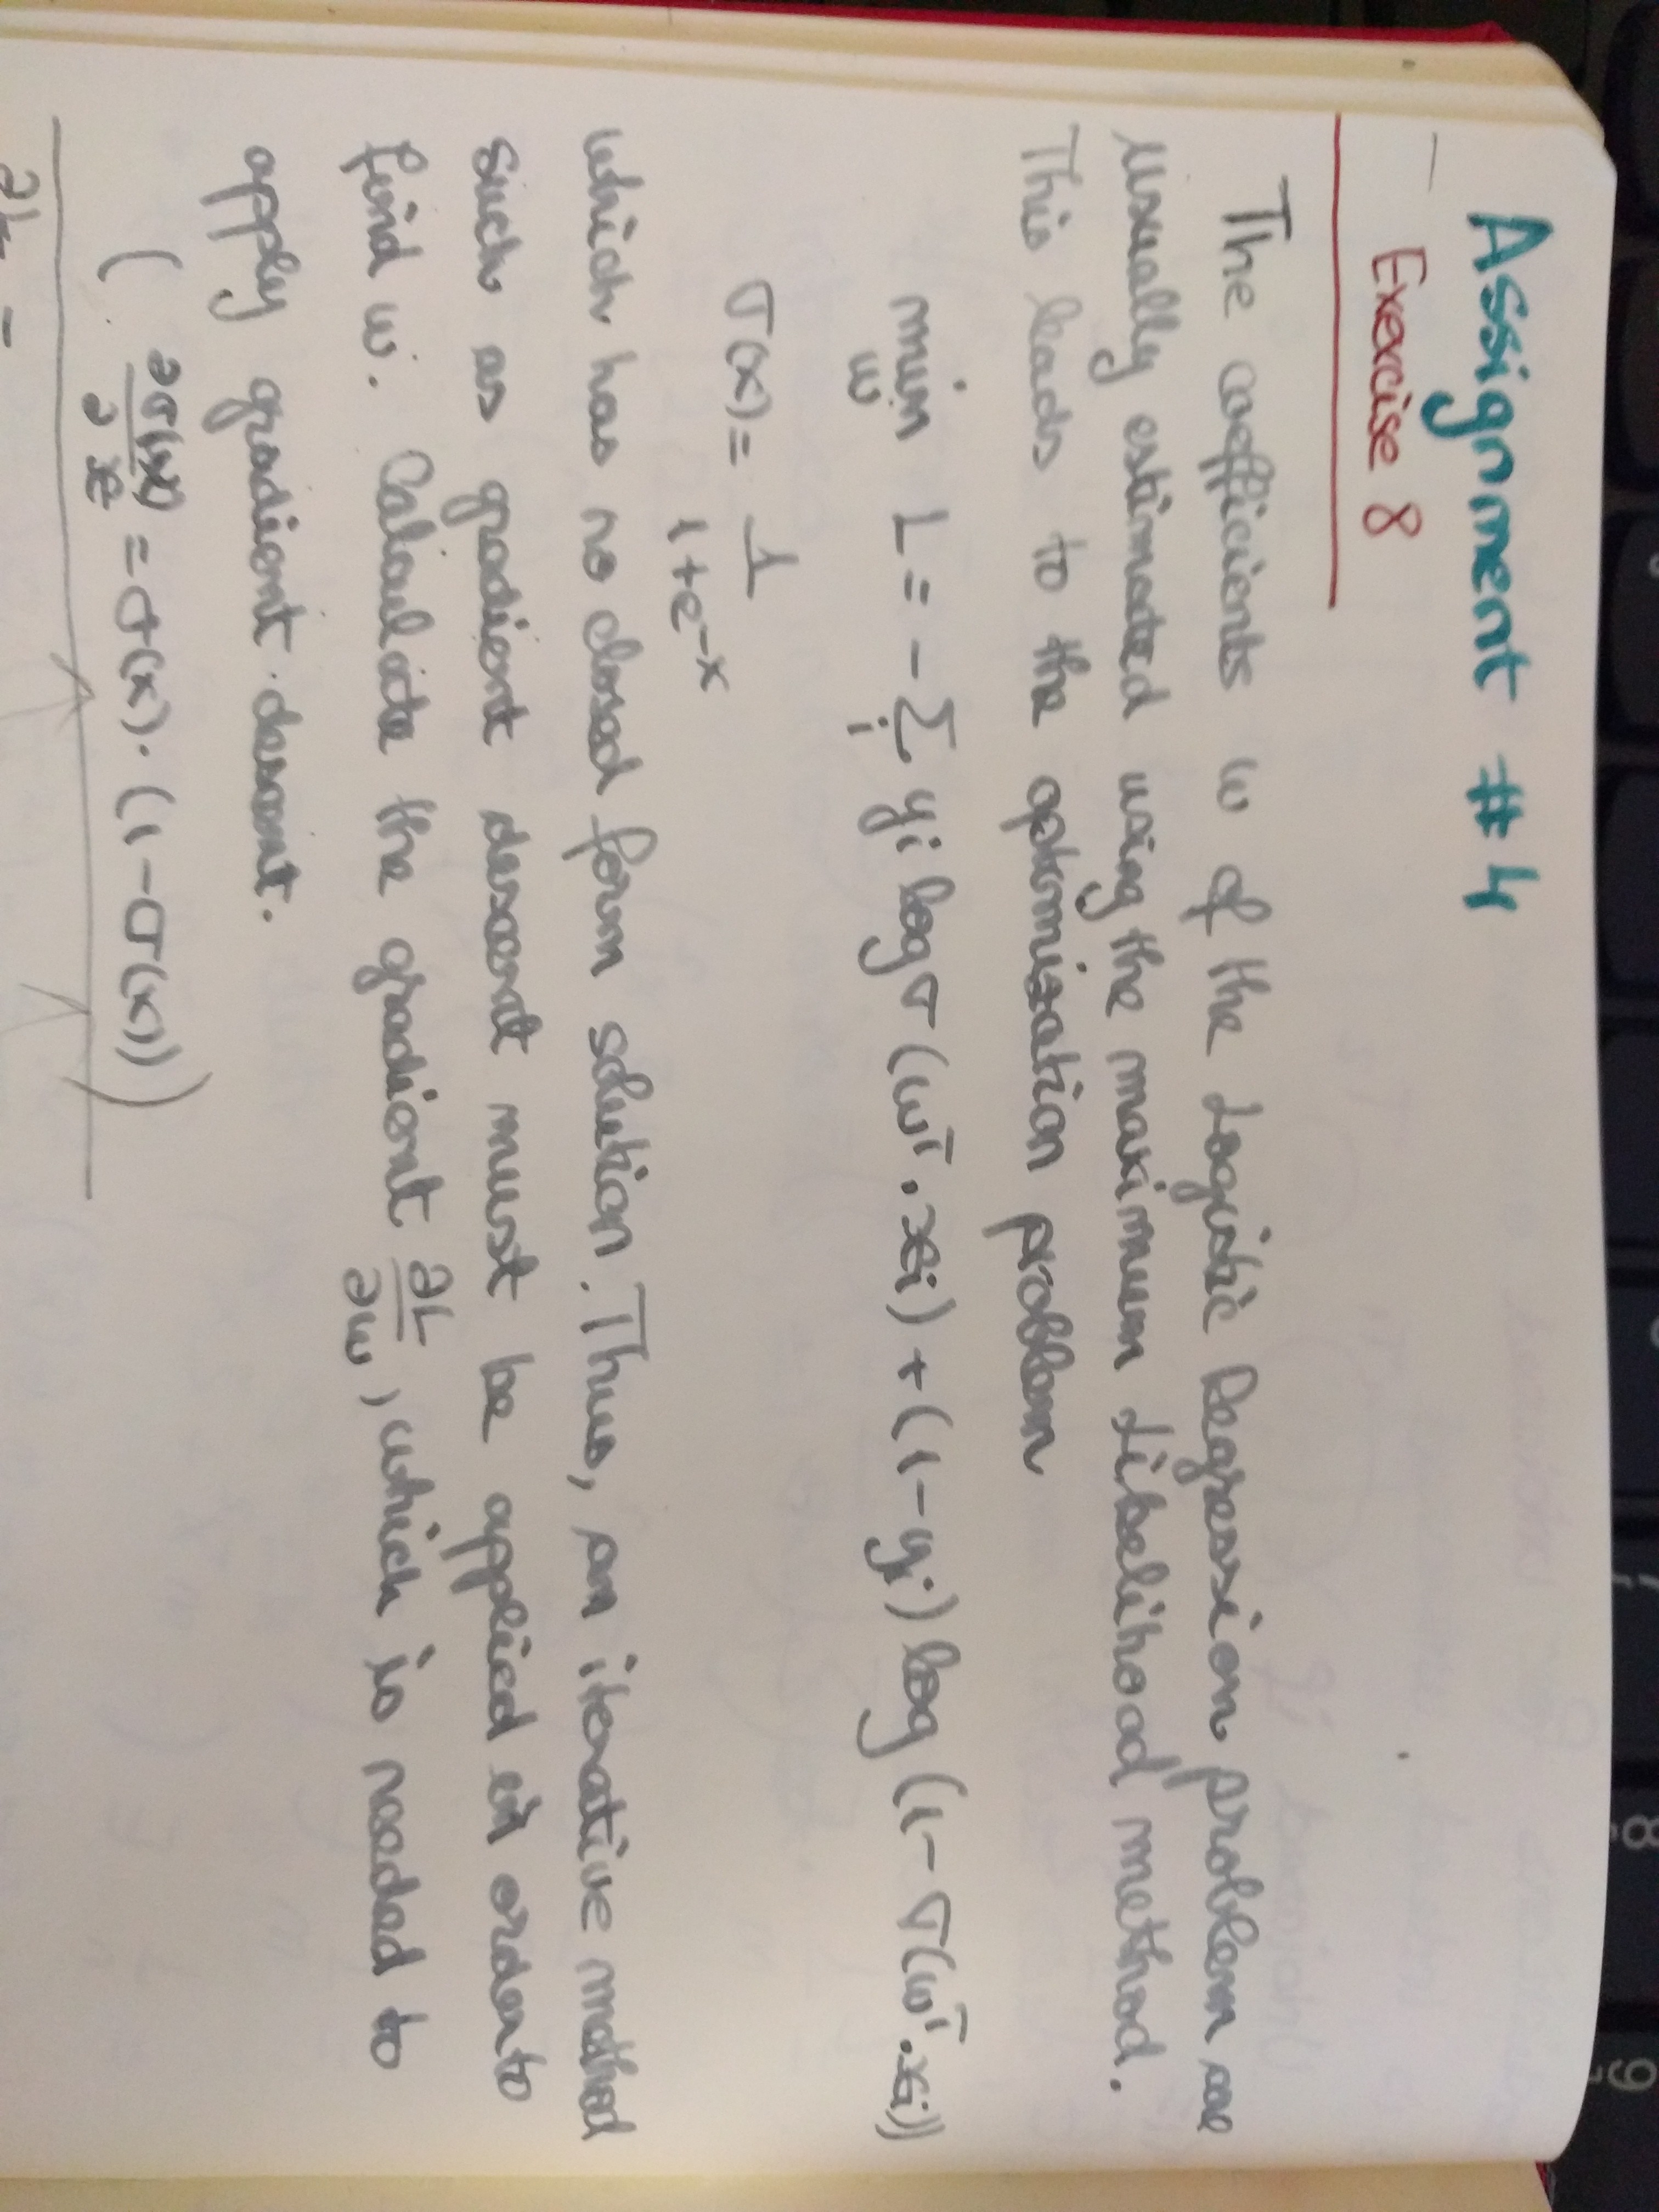 Assignment #4
Exercise 8
The coefficients w of the Logistic Regression problem are
usually estimated using the maximum Likelihood method.
This leads to the optimization problem
min L = - Σ yi log σ (wᵀ · xi) + (1 - yi) log (1 - σ(wᵀ · xi))
w i
σ(x) = 1
1 + e^-x
which has no closed form solution. Thus, an iterative method
such as gradient descent must be applied in order to
find w. Calculate the gradient ∂L/∂w, which is needed to
apply gradient descent.
( ∂σ(x)/∂x = σ(x) · (1 - σ(x)) )
∂L =